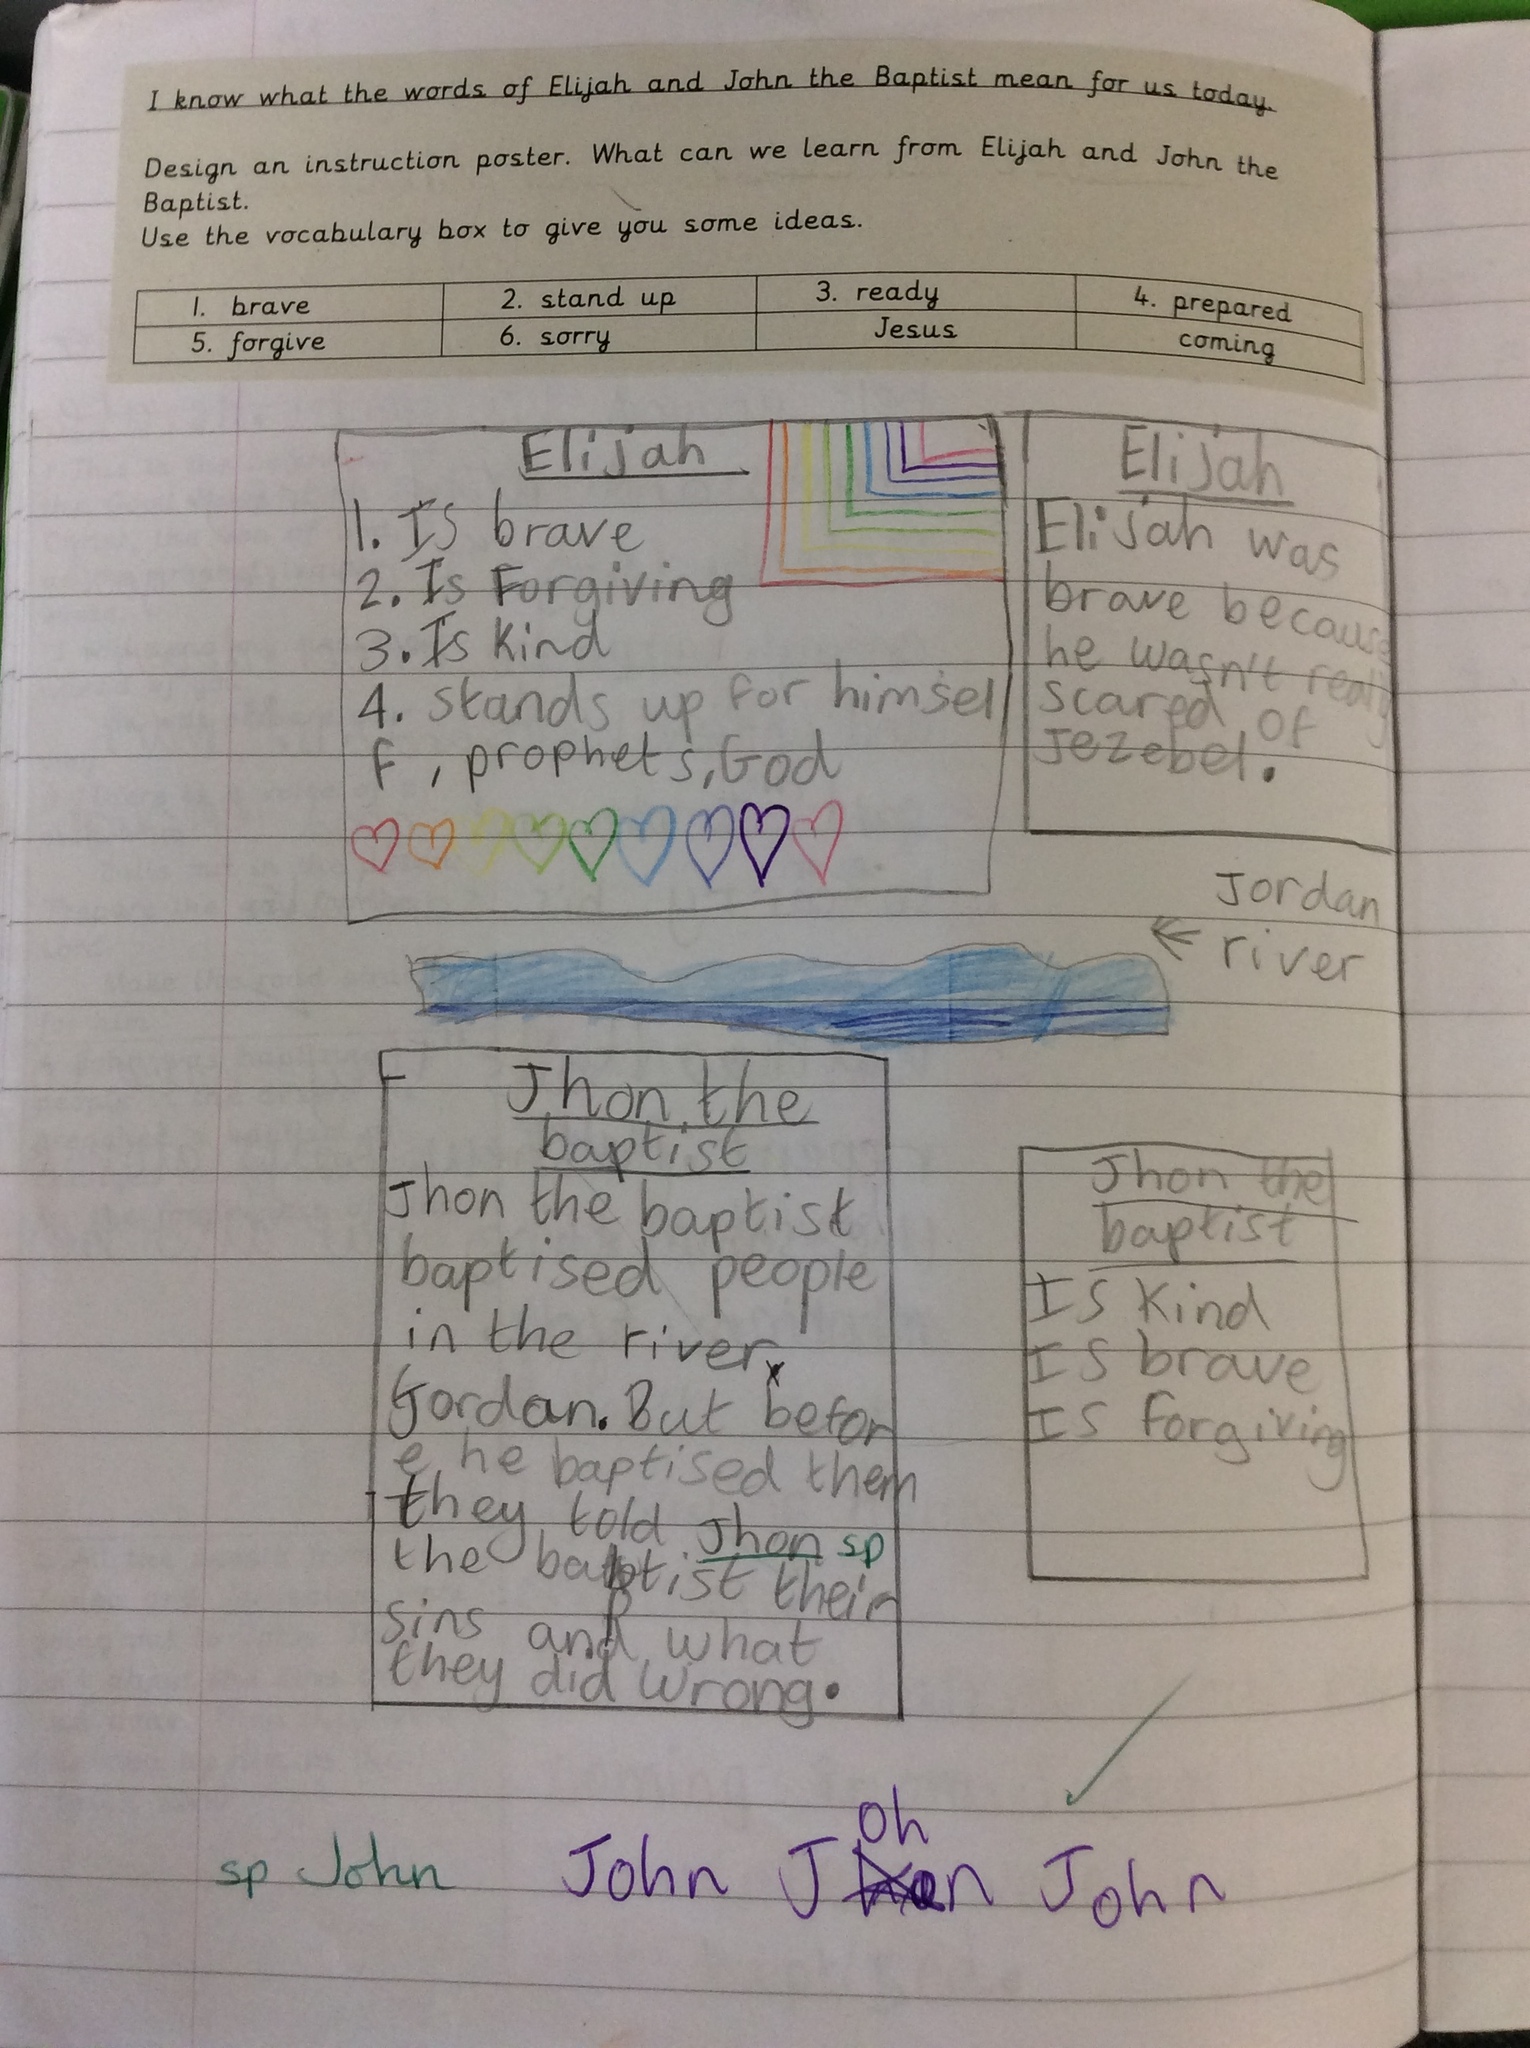 I know what the words of Elijah and John the Baptist mean for us today.
Design an instruction poster. What can we learn from Elijah and John the
Baptist.
Use the vocabulary box to give you some ideas.
1. brave 2. stand up 3. ready 4. prepared
5. forgive 6. sorry Jesus coming
Elijah
1. Is brave
2. Is Forgiving
3. Is Kind
4. stands up for himsel
f, prophets, God
Elijah
Elijah was
brave because
he wasn't really
scared of
Jezebel.
Jordan
river
Jhon the
baptist
Jhon the baptist
baptised people
in the river
Jordan. But befor
e he baptised them
they told Jhon sp
the baptist their
sins and what
they did wrong.
Jhon the
baptist
Is Kind
Is brave
Is forgiving
oh
sp John John J n John